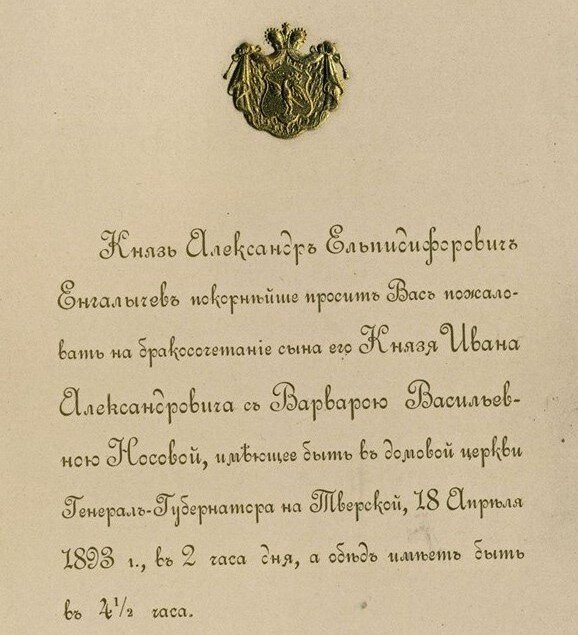 Князь Александръ Ельпидифоровичъ
Енгалычевъ покорнѣйше проситъ Васъ пожало-
вать на бракосочетаніе сына его Князя Ивана
Александровича съ Варварою Васильев-
ною Носовой, имѣющее быть въ домовой церкви
Генералъ-Губернатора на Тверской, 18 Апрѣля
1893 г., въ 2 часа дня, а обѣдъ имѣетъ быть
въ 4½ часа.